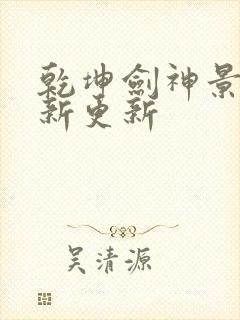 乾坤劍神景
新更新
吴清源